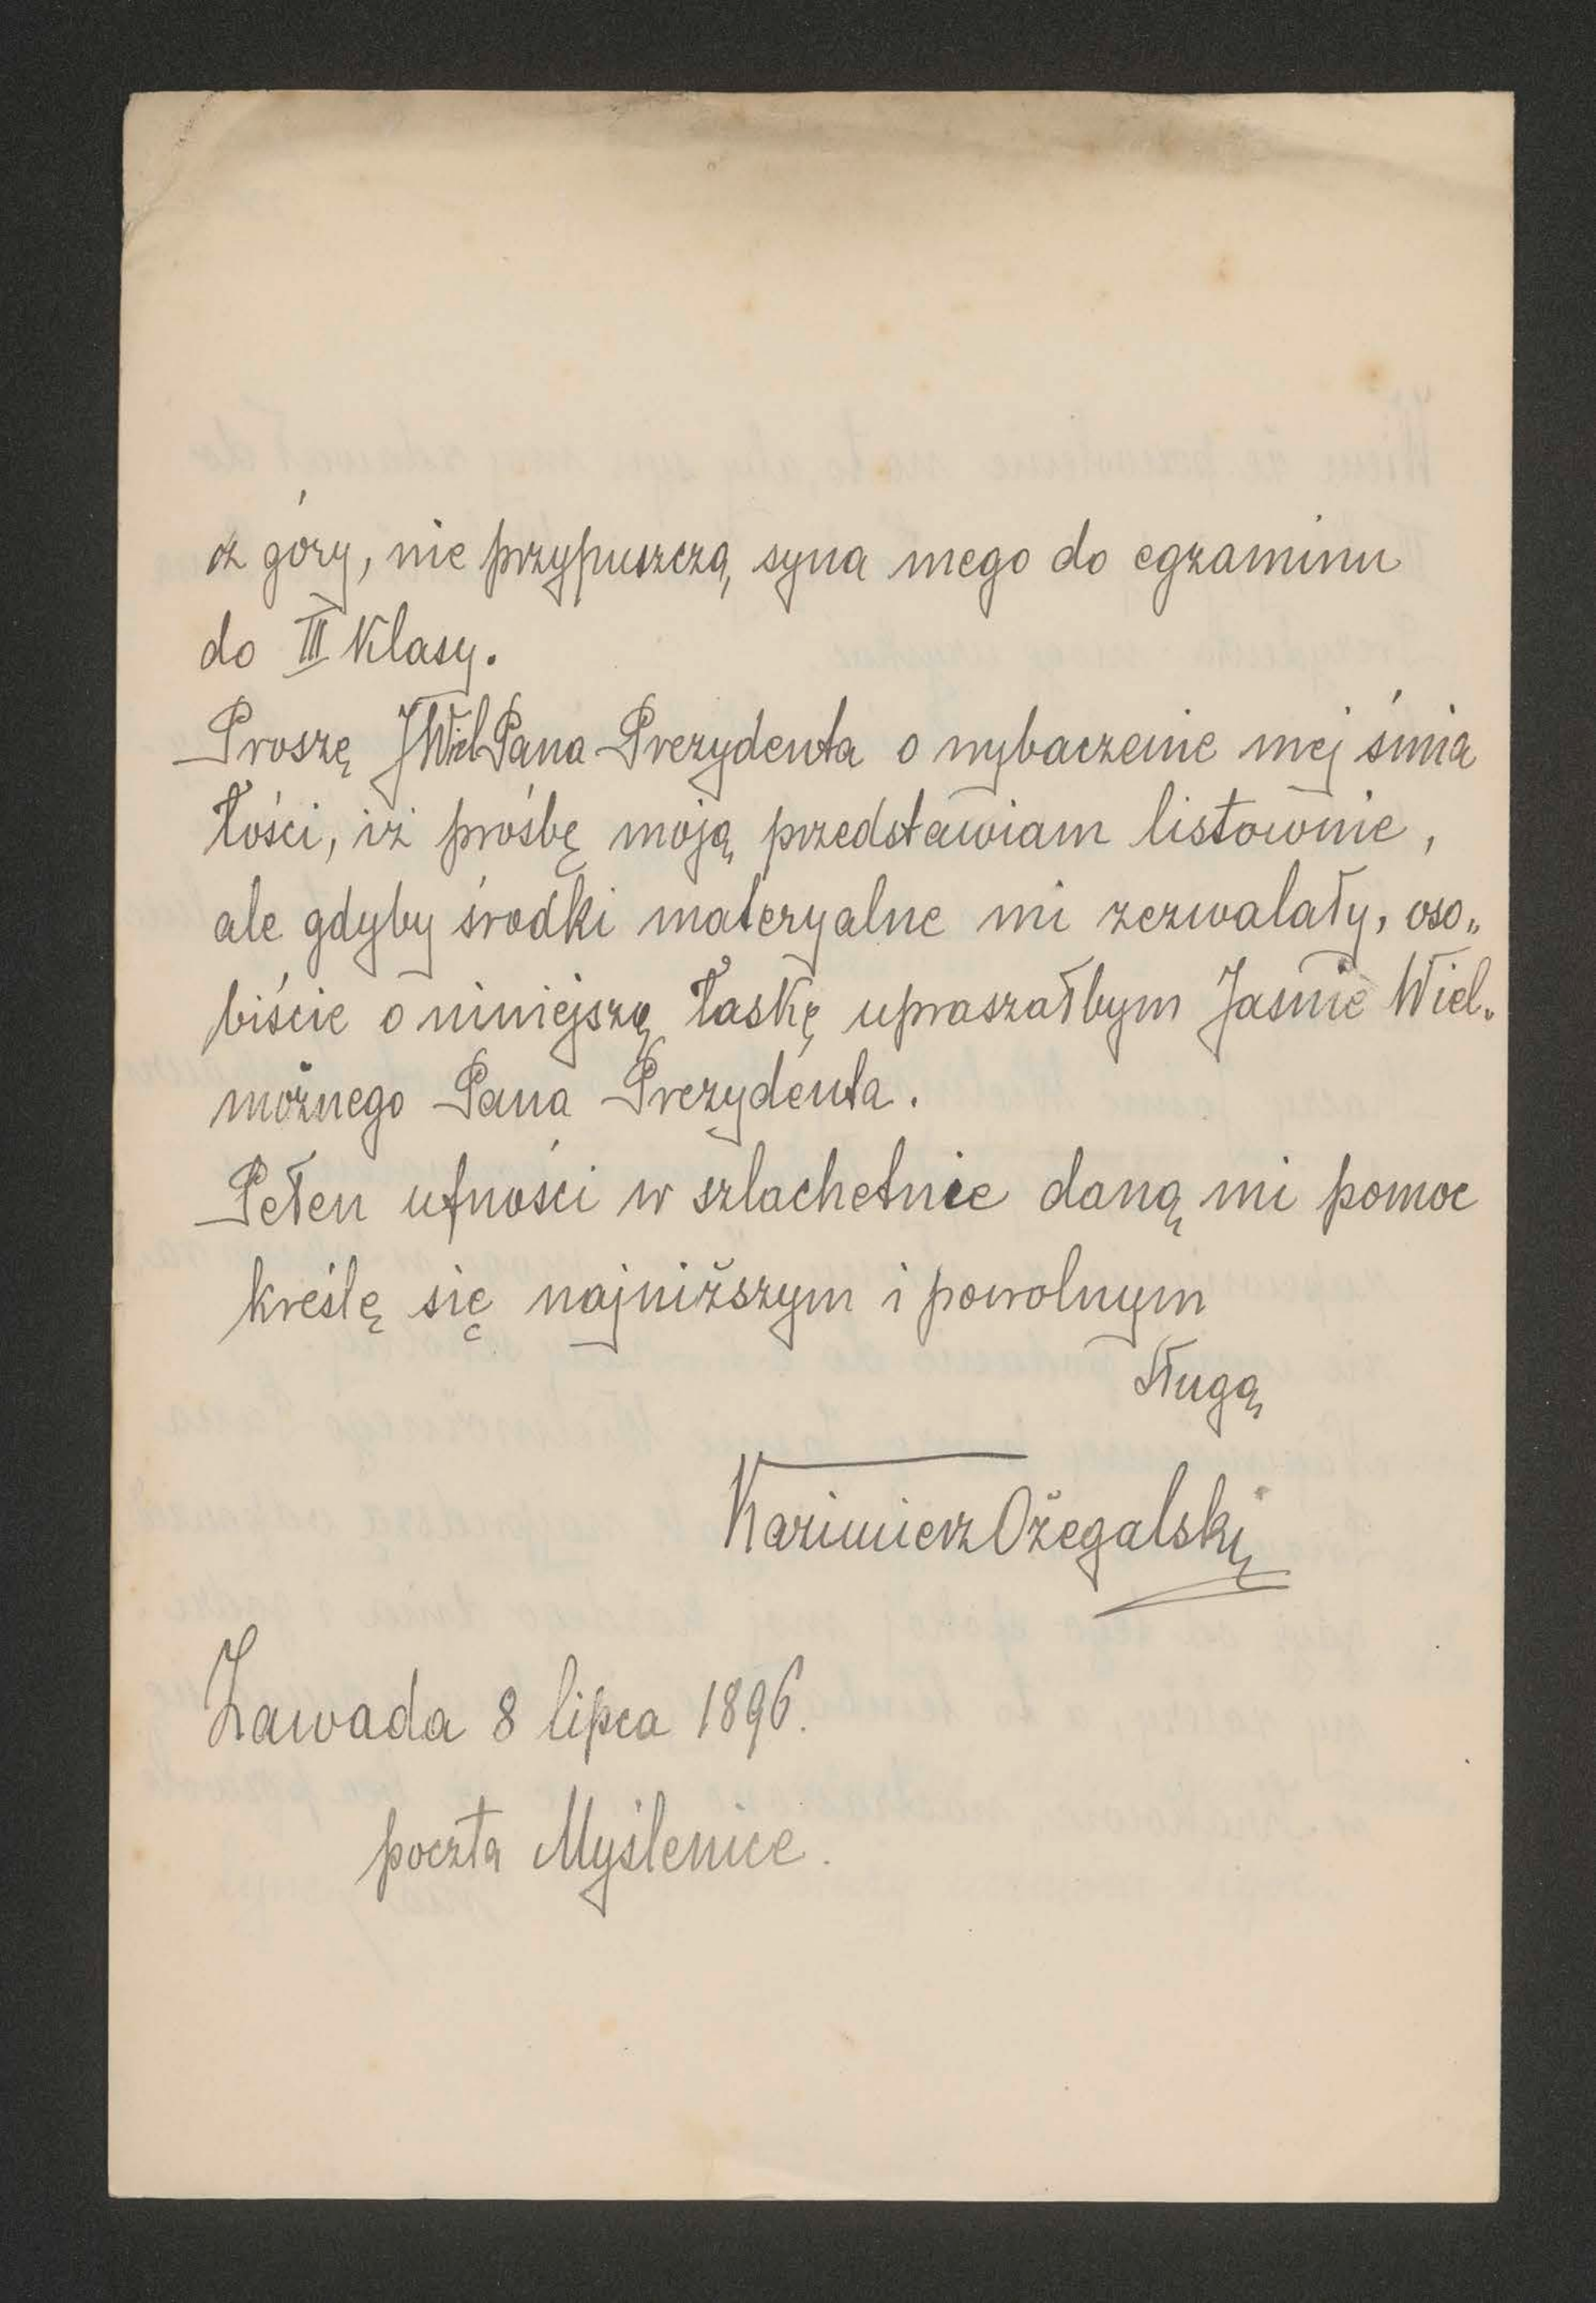 z góry, nie przypuszczą syna mego do egzaminu
do III Klasy.
Proszę JWielPana Prezydenta o wybaczenie mej śmia
łości, iż prośbę moją przedstawiam listownie,
ale gdyby środki materyalne mi zezwalały, oso„
biście o niniejszą łaskę upraszałbym Jaśnie Wiel„
możnego Pana Prezydenta.
Pełen ufności w szlachetnie daną mi pomoc
kreślę się najniższym i powolnym
sługą
Kazimierz Ożegalski
Zawada 8 lipca 1896.
poczta Myślenice.